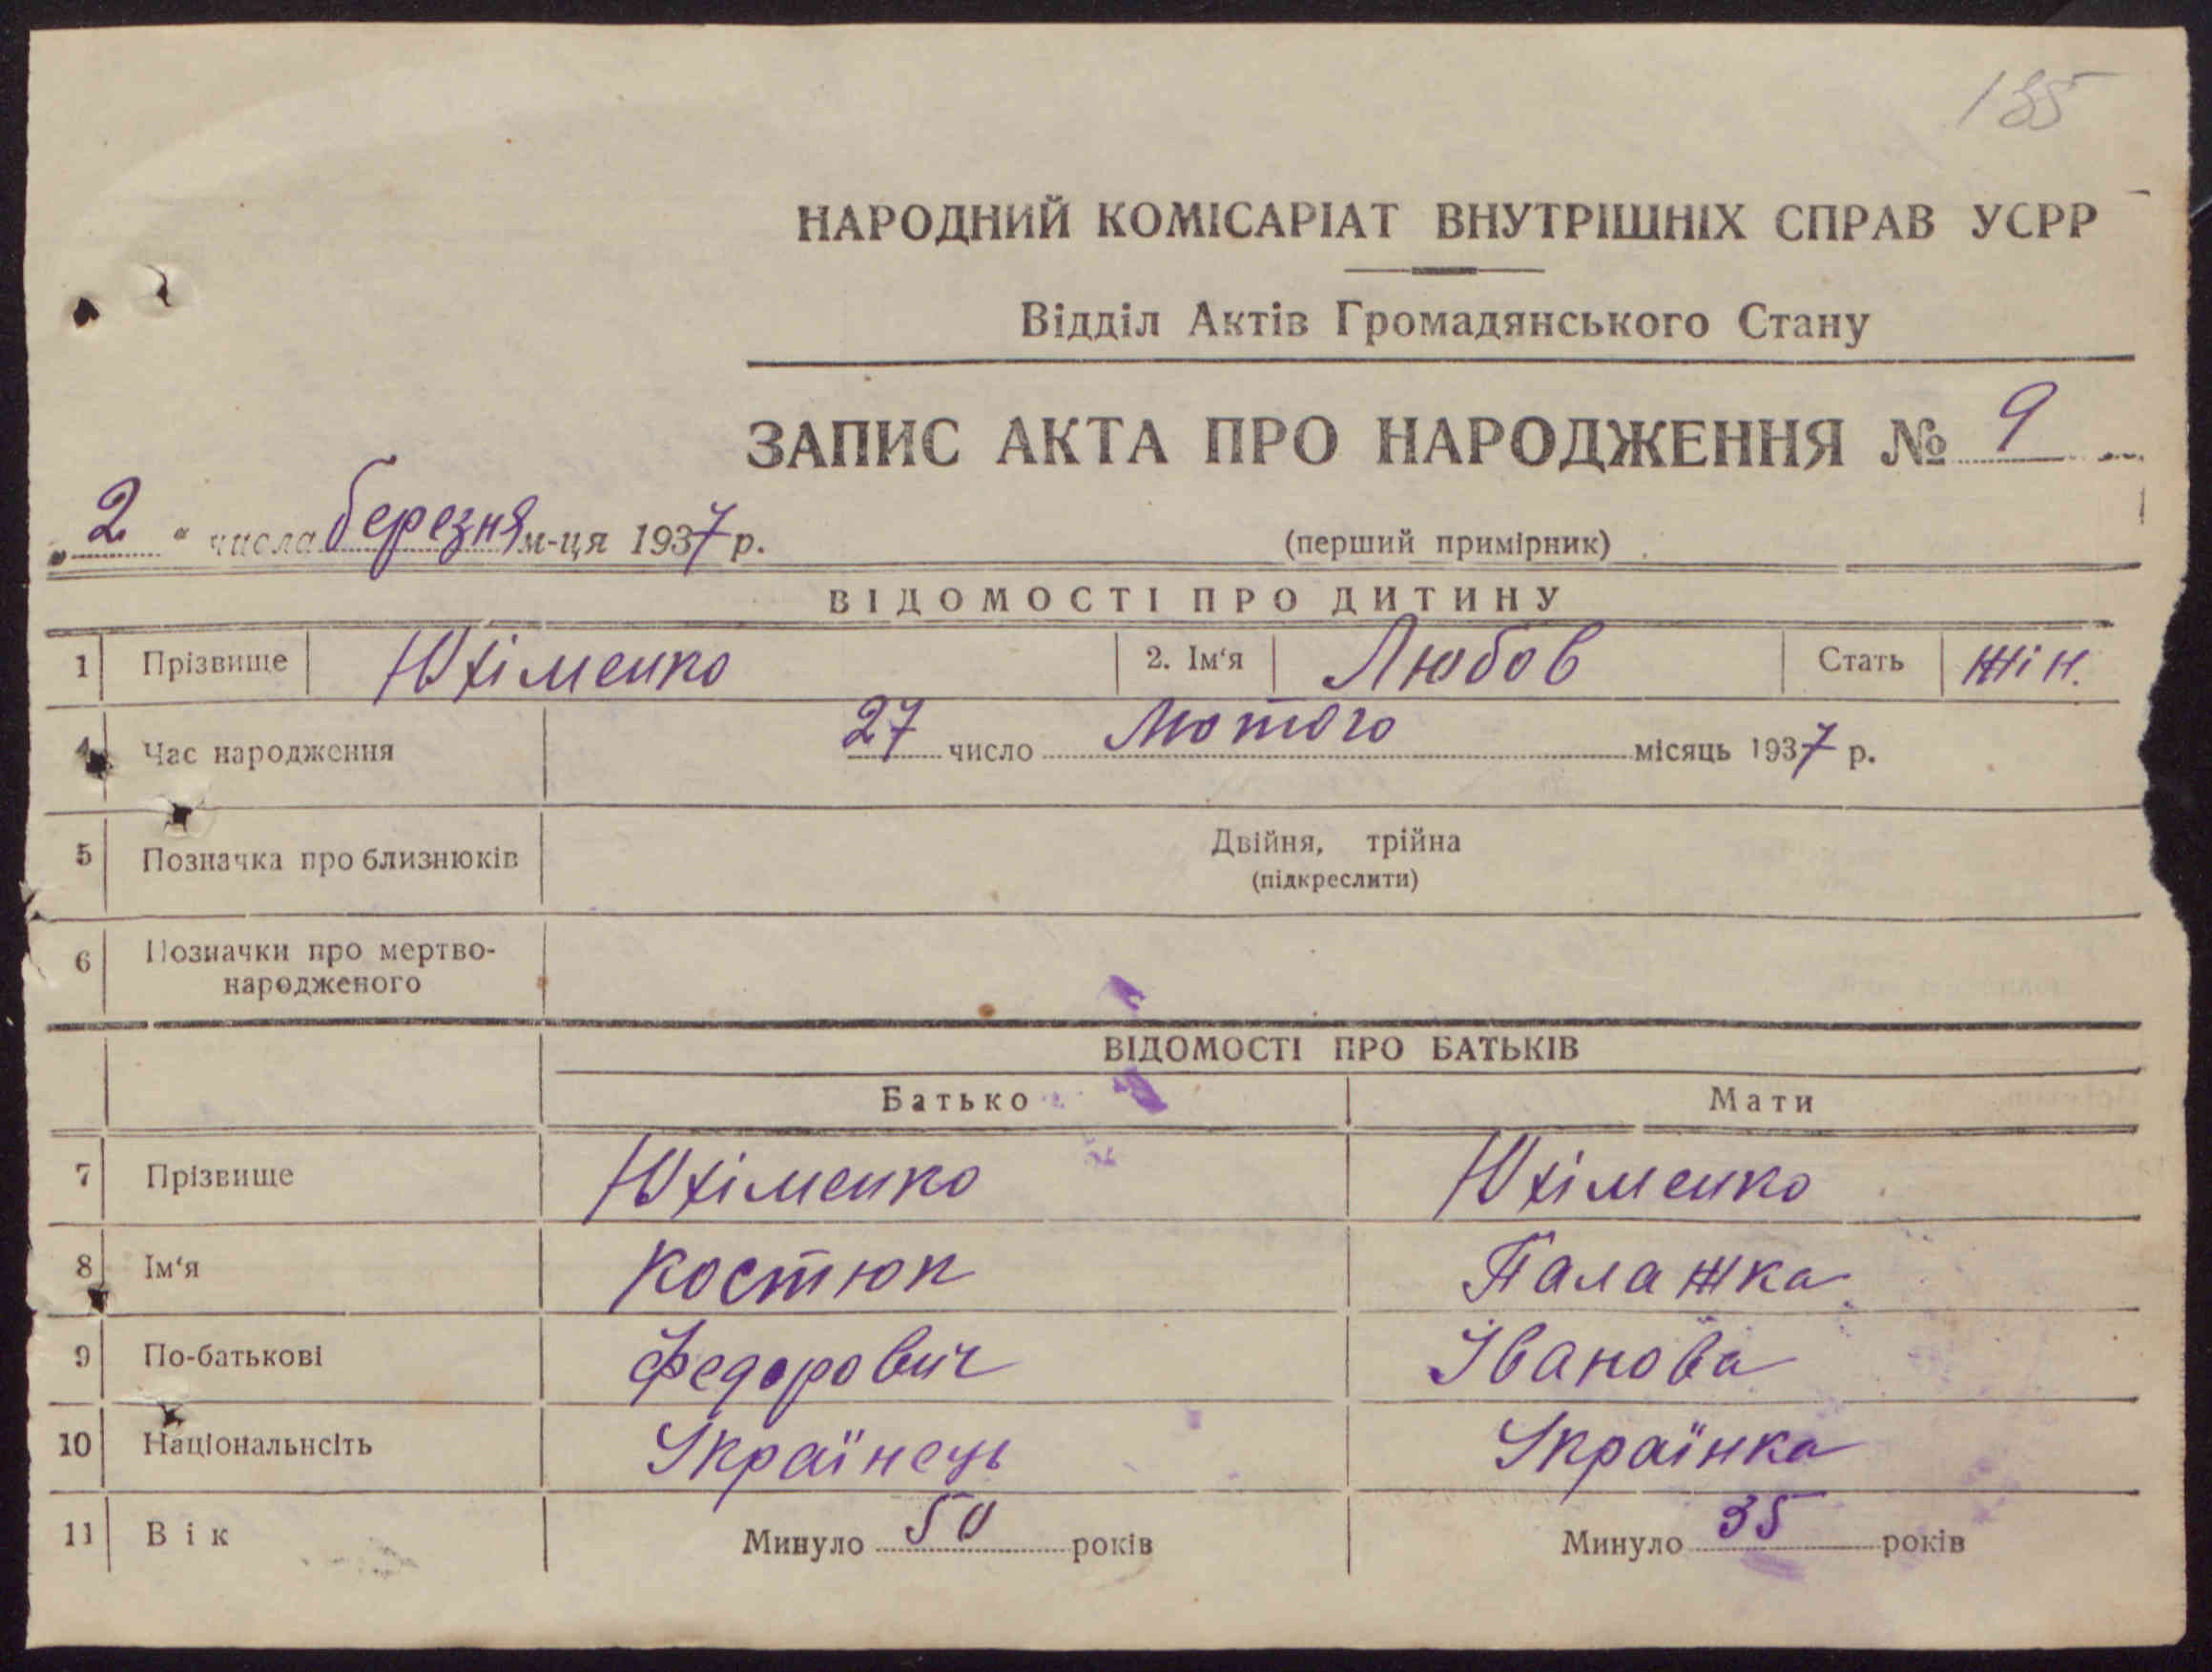 135
НАРОДНИЙ КОМІСАРІАТ ВНУТРІШНІХ СПРАВ УСРР
Відділ Актів Громадянського Стану
ЗАПИС АКТА ПРО НАРОДЖЕННЯ № 9
„2“ числа березня м-ця 1937 р.
(перший примірник)
ВІДОМОСТІ ПРО ДИТИНУ
1 Прізвище Юхіменко 2. Ім‘я Любов Стать жін.
4 Час народження 27 число Лютого місяць 1937 р.
5 Позначка про близнюків Двійня, трійна
(підкреслити)
6 Позначки про мертво-
народженого
ВІДОМОСТІ ПРО БАТЬКІВ
Батько Мати
7 Прізвище Юхіменко Юхіменко
8 Ім‘я Костюк Палажка
9 По-батькові Федорович Іванова
10 Національнсіть Українець Українка
11 Вік Минуло 50 років Минуло 35 років